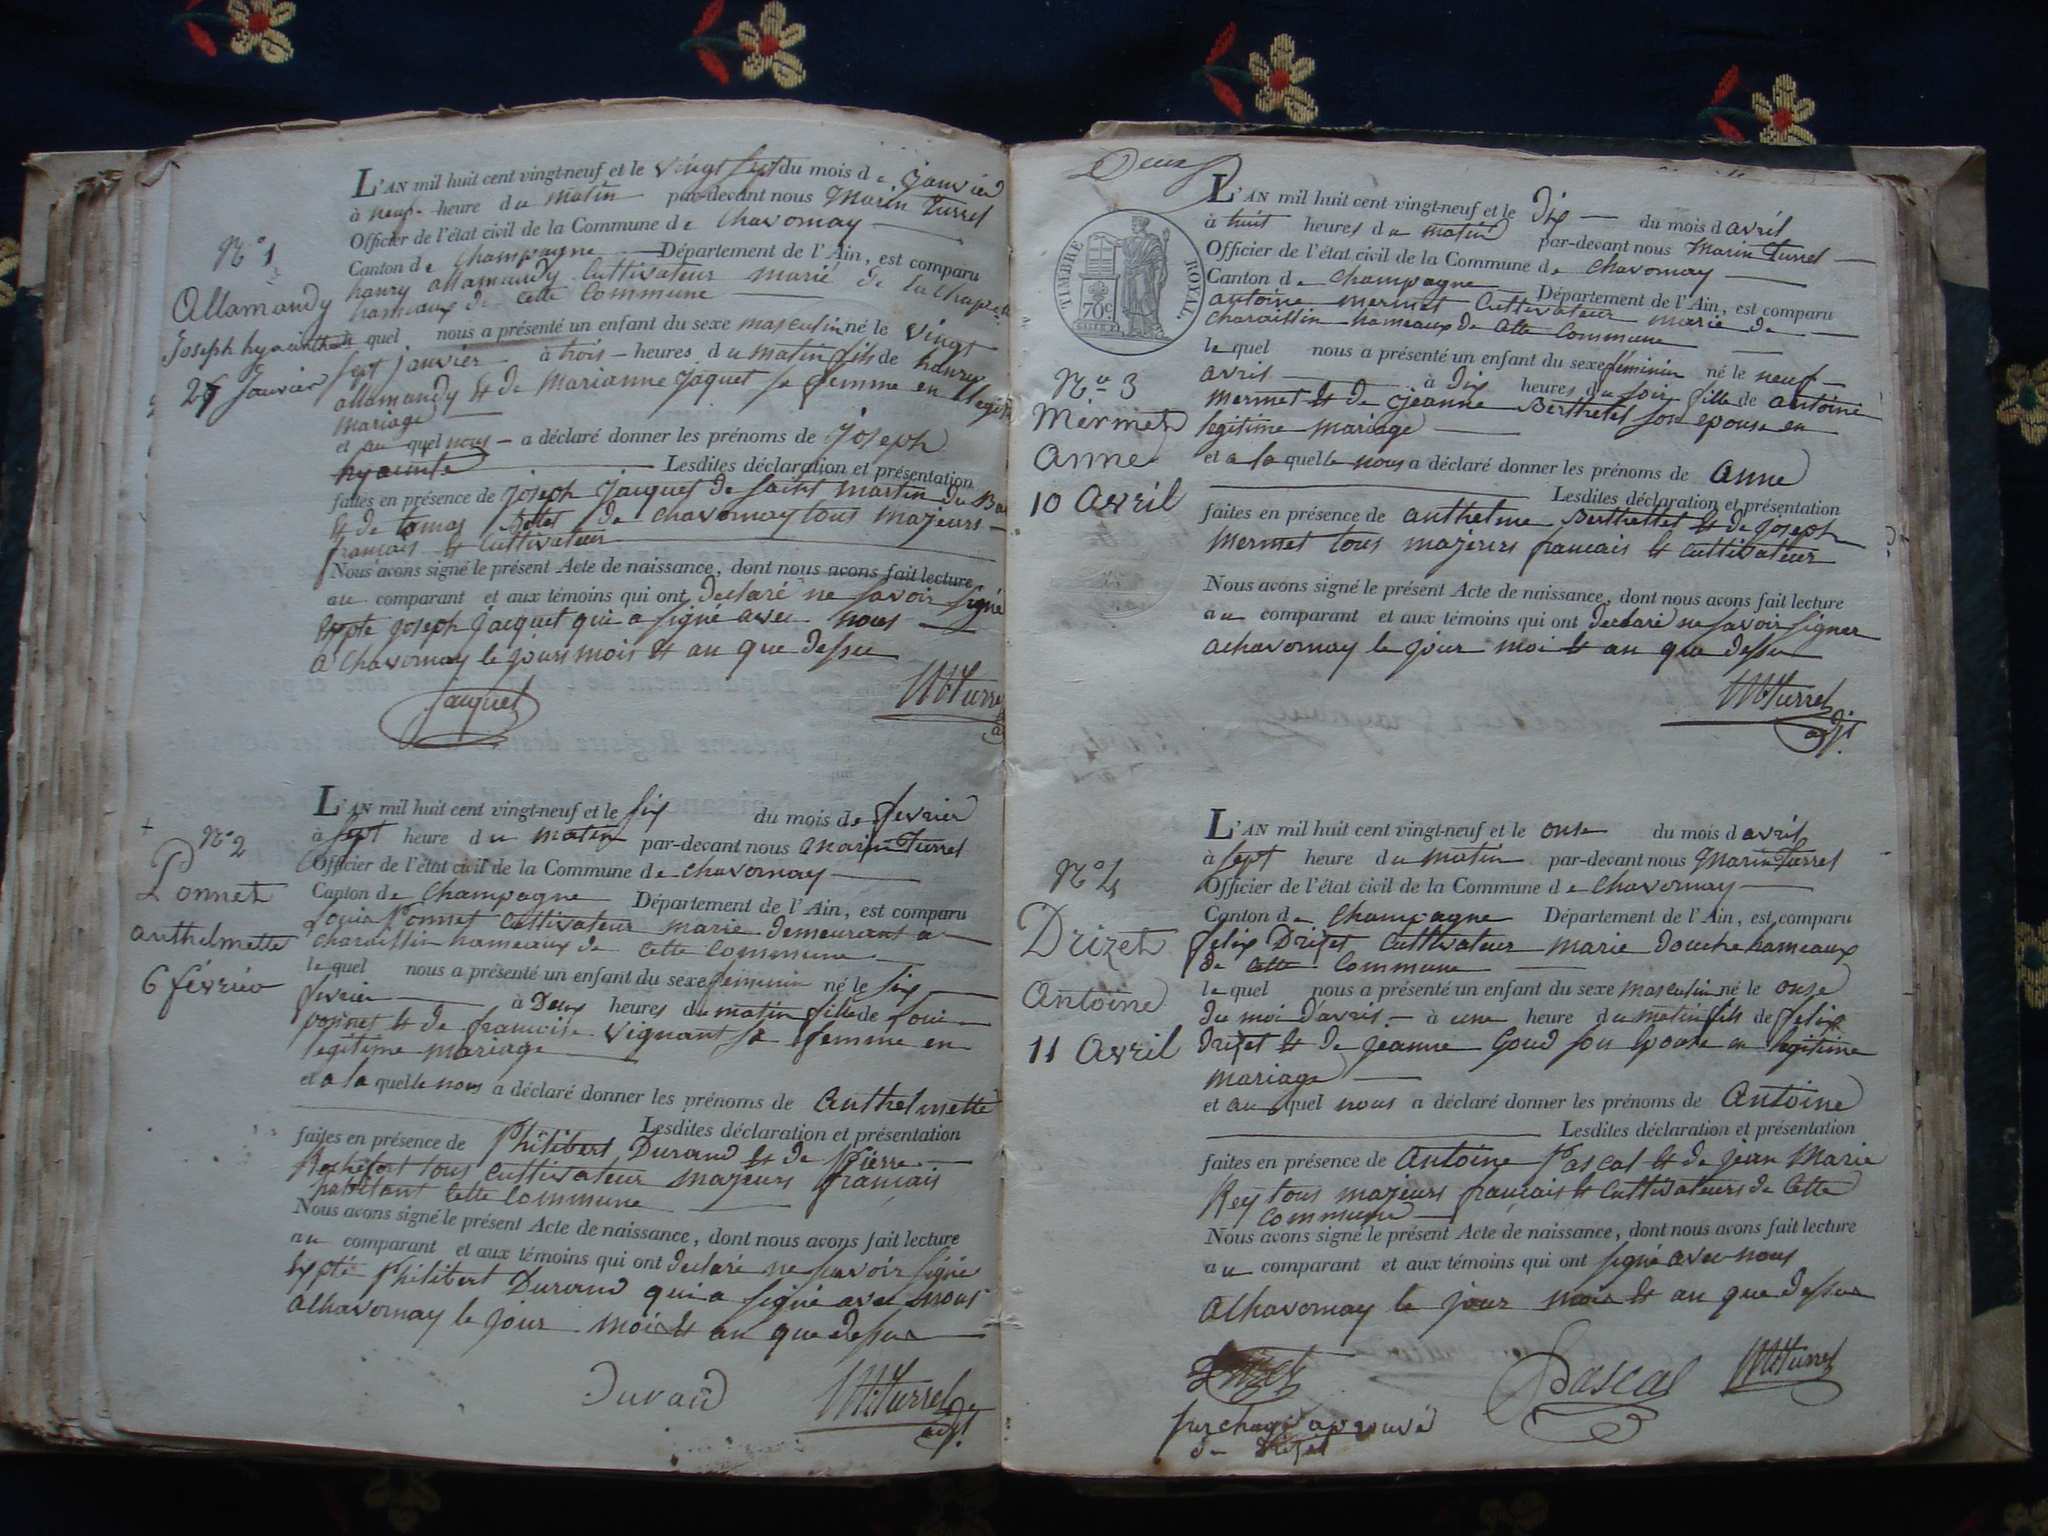 L'AN mil huit cent vingt-neuf et le vingt sept du mois de janvier
à neuf heure du matin par-devant nous Marin Turrel
Officier de l'état civil de la Commune de Chavornay
Canton de Champagne Département de l'Ain, est comparu
hanry allamandy Cultivateur marié de la Chapelle
hameaux de cette Commune
le quel nous a présenté un enfant du sexe masculin né le vingt
sept janvier à trois heures du matin fils de hanry
allamandy et de Marianne Jaquet sa femme en legitime
mariage
et au quel nous a déclaré donner les prénoms de joseph
hyacinte Lesdites déclaration et présentation
faites en présence de joseph jacquet de saint martin de Ba
et de tomas de chavornay tous majeurs
francais et cultivateur
Nous avons signé le présent Acte de naissance, dont nous avons fait lecture
au comparant et aux témoins qui ont declaré ne savoir signé
expté joseph jacquet qui a signé avec nous
a Chavornay le jours mois et an que dessu
jacquet
M. Turrel
N.o 1
Allamandy
Joseph hyacinthe
27 Janvier
L'AN mil huit cent vingt-neuf et le six du mois de fevrier
à sept heure du matin par-devant nous marin Turrel
Officier de l'état civil de la Commune de chavornay
Canton de Champagne Département de l'Ain, est comparu
Louis Ponnet Cultivateur marie demeurant a
charaissin hameaux de cette commune
le quel nous a présenté un enfant du sexe feminin né le six
fevrier à Deux heures du matin fille de Loui
ponnet et de francoise vignant sa femme en
legitime mariage
et a la quelle nous a déclaré donner les prénoms de anthelmette
Lesdites déclaration et présentation
faites en présence de Philibert Durand et de Pierre
Rochefort tous cultivateur majeurs francais
habitant cette Commune
Nous avons signé le présent Acte de naissance, dont nous avons fait lecture
au comparant et aux témoins qui ont declaré ne savoir signé
expté Philibert Durand qui a signé avec nous
a Chavornay le jour mois et an que dessus
Durand
M. Turrel
adj.t
N.o 2
Ponnet
anthelmette
6 février
Deux
TIMBRE ROYAL.
70c
L'AN mil huit cent vingt-neuf et le dix du mois d avril
à huit heures du matin par-devant nous Marin Turrel
Officier de l'état civil de la Commune de Chavornay
Canton de Champagne Département de l'Ain, est comparu
antoine mermet Cultivateur marié de
charaissin hameaux de cette Commune
le quel nous a présenté un enfant du sexe féminin né le neuf
avril à dix heures du soir fille de antoine
Mermet et de jeanne Berthelet son epouse en
legitime mariage
et a la quelle nous a déclaré donner les prénoms de anne
Lesdites déclaration et présentation
faites en présence de anthelme Berthellet et de joseph
Mermet tous majeurs francais et cultivateur
Nous avons signé le présent Acte de naissance, dont nous avons fait lecture
au comparant et aux témoins qui ont declaré ne savoir signer
a chavornay le jour moi et an que dessu
M. Turrel
adj.t
N.o 3
Mermet
anne
10 avril
L'AN mil huit cent vingt-neuf et le onse du mois d avril
à sept heure du matin par-devant nous Marin Turrel
Officier de l'état civil de la Commune de Chavornay
Canton de Champagne Département de l'Ain, est comparu
felix Drizet cultivateur marie douche hameaux
de cette Commune
le quel nous a présenté un enfant du sexe masculin né le onse
du moi d'avril à une heure du matin fils de felix
drizet et de jeanne Goud son epouse en legitime
mariage
et au quel nous a déclaré donner les prénoms de antoine
Lesdites déclaration et présentation
faites en présence de antoine Pascal et de jean Marie
Rey tous majeurs francais et cultivateurs de cette
commune
Nous avons signé le présent Acte de naissance, dont nous avons fait lecture
au comparant et aux témoins qui ont signé avec nous
a Chavornay le jour mois et an que dessus
Drizet
Pascal
M. Turrel
surchage aprouvé
de drizet
N.o 4
Drizet
antoine
11 avril